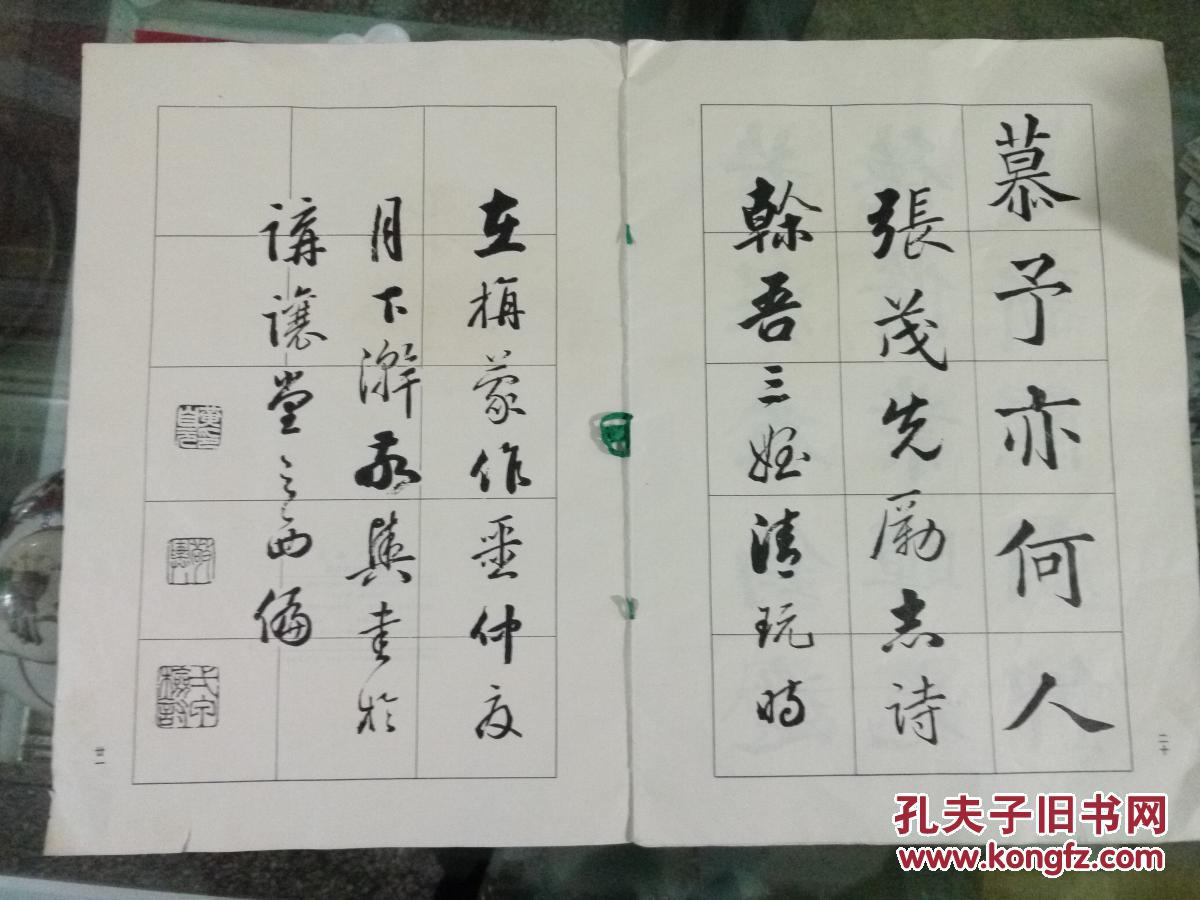 慕予亦何人
張茂先励志詩
榦吾三姪清玩時
二十
在旃蒙作噩仲夏
月下澣敬輿書於
講讓堂之西偏
廿一
孔夫子旧书网
www.kongfz.com